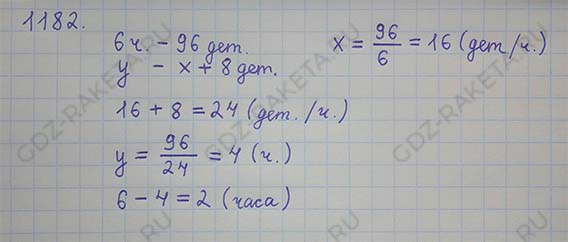 1182.
6 ч. – 96 дет.
x = 96/6 = 16 (дет/ч.)
y – x + 8 дет.
16 + 8 = 24 (дет./ч.)
y = 96/24 = 4 (ч.)
6 – 4 = 2 (часа)
GDZ-RAKETA.RU
GDZ-RAKETA.RU
GDZ-RAKETA.RU